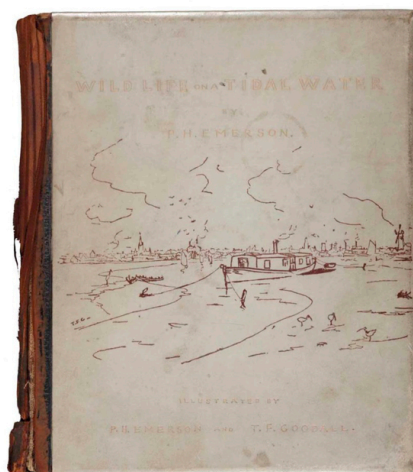 WILD LIFE ON A TIDAL WATER
BY
P.H. EMERSON.
T.F.G.
ILLUSTRATED BY
P.H. EMERSON AND T. F. GOODALL.